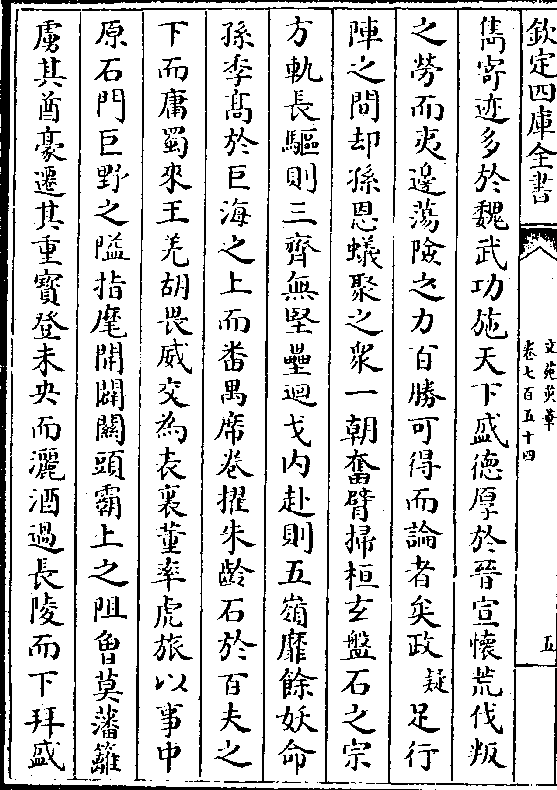 欽定四庫全書
文苑英華
卷七百五十四
五
雋寄迹多於魏武功施天下盛德厚於晉宣懷荒伐叛
之勞而夷邊蕩險之力百勝可得而論者矣政疑足行
陣之間却孫恩蟻聚之衆一朝奮臂掃桓玄盤石之宗
方軌長驅則三齊無堅壘迴戈内赴則五嶺靡餘妖命
孫季髙於巨海之上而畨禺席巻擢朱齡石於百夫之
下而庸蜀來王羌胡畏威交為表裏董率虎旅以事中
原石門巨野之隘指麾開闢關頭霸上之阻曾莫藩籬
虜其酋豪遷其重寳登未央而灑酒過長陵而下拜盛